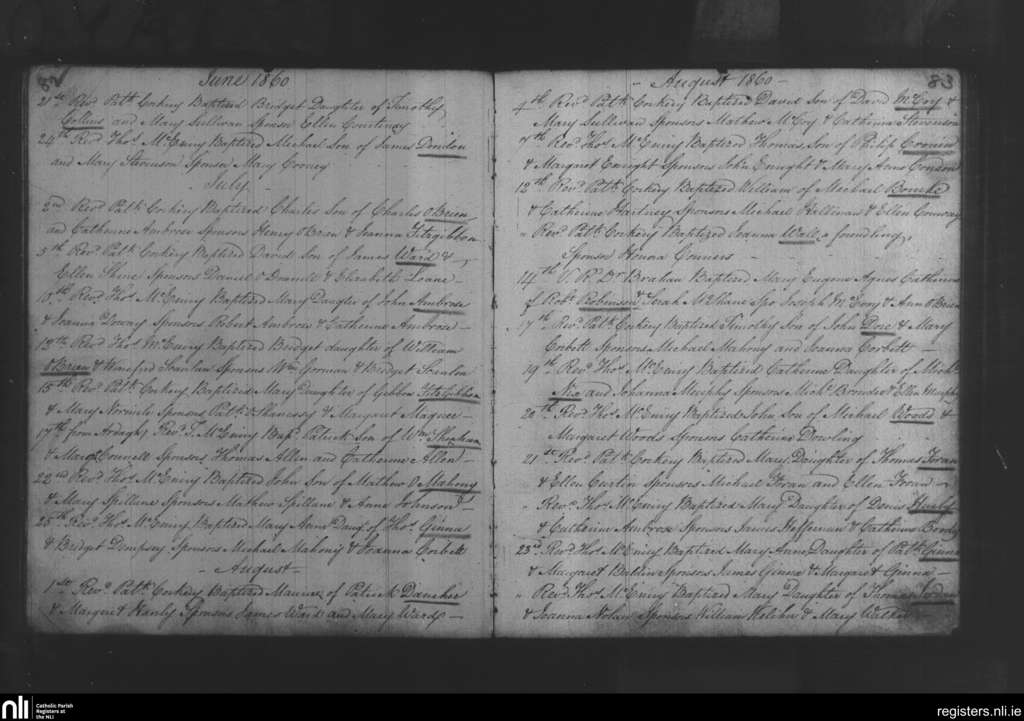 82
June 1860
21st Revd Patk Corkery Baptized Bridget Daughter of Timothy
Collins and Mary Sullivan Sponsor Ellen Courtenay
24th Revd Thos McEniry Baptized Michael Son of James Dondon
and Mary Stevenson Sponsor Mary Cooney
July
2nd Revd Patk Corkery Baptized Charles Son of Charles O'Brien
and Catherine Ambrose Sponsors Henry O'Brien & Joanna Fitzgibbon
5th Revd Patk Corkery Baptized David Son of James Ward &
Ellen Shine Sponsors Daniel & Elizabeth Loane
10th Revd Thos McEniry Baptized Mary Daughter of John Ambrose
& Joanna Sponsors Robert Ambrose & Catherine Ambrose
Revd Thos McEniry Baptized Bridget daughter of William
O'Brien & Winefred Scanlan Sponsors Wm Gorman & Bridget
15th Revd Patk Corkery Baptized Mary Daughter of Gibbon FitzGibbon
& Mary Sponsors Patk Shanessy & Margaret Magner
17th from Ardagh Revd T. McEniry Bapd Patrick Son of Wm Sheehan
& Mary Connell Sponsors Thomas Allen and Catherine Allen
22nd Revd Thos McEniry Baptized John Son of Mathew O Mahony
& Mary Spillane Sponsors Mathew Spillane & Anne Johnson
25th Revd Thos McEniry Baptized Mary Anne Daug of Thos Ginna
& Bridget Dempsey Sponsors Michael Mahony & Joanna Corbett
- August -
1st Revd Patk Corkery Baptized Maurice of Patrick Danaher
& Margaret Hanly Sponsors James Ward and Mary Ward
83
- August 1860 -
th Revd Patk Corkery Baptized David Son of David McCoy &
Mary Sullivan Sponsors Mathew McCoy & Catherine Stevenson
9th Revd Thos McEniry Baptized Thomas Son of Philip Cronin
& Margaret Enright Sponsors John Enright & Mary Anne Condon
12th Revd Patk Corkery Baptized William of Michael Bourke
& Catherine Hartney Sponsors Michael Hallinan & Ellen Conway
" Revd Patk Corkery Baptized Joanna Wall a foundling
Sponsor Honora Conners
14th V. R. Dr Brahan Baptized Mary Eugene Agnes Catherine
of Robt Robinson & Sarah Spo Joseph & Ann O'Brien
17th Revd Patk Corkery Baptized Timothy Son of John Dore & Mary
Corbett Sponsors Michael Mahony and Joanna Corbett
19th Revd Thos McEniry Baptized Catherine Daughter of Michl
Nix and Johanna Murphy Sponsors Michl & Ellen Murphy
20th Revd Thos McEniry Baptized John Son of Michael Woods &
Margaret Woods Sponsors Catherine Dowling
21st Revd Patk Corkery Baptized Mary Daughter of Thomas
& Ellen Curtin Sponsors Michael and Ellen
" Revd Thos McEniry Baptized Mary Daughter of Denis
& Catherine Ambrose Sponsors James Heffernan & Catherine
23rd Revd Thos McEniry Baptized Mary Anne Daughter of Patk Ginna
& Margaret Baldwin Sponsors James Ginna & Margaret Ginna
" Revd Thos McEniry Baptized Mary Daughter of Thomas
& Joanna Nolan Sponsors William Whelan & Mary Walker
nli
Catholic Parish
Registers at
the NLI
registers.nli.ie